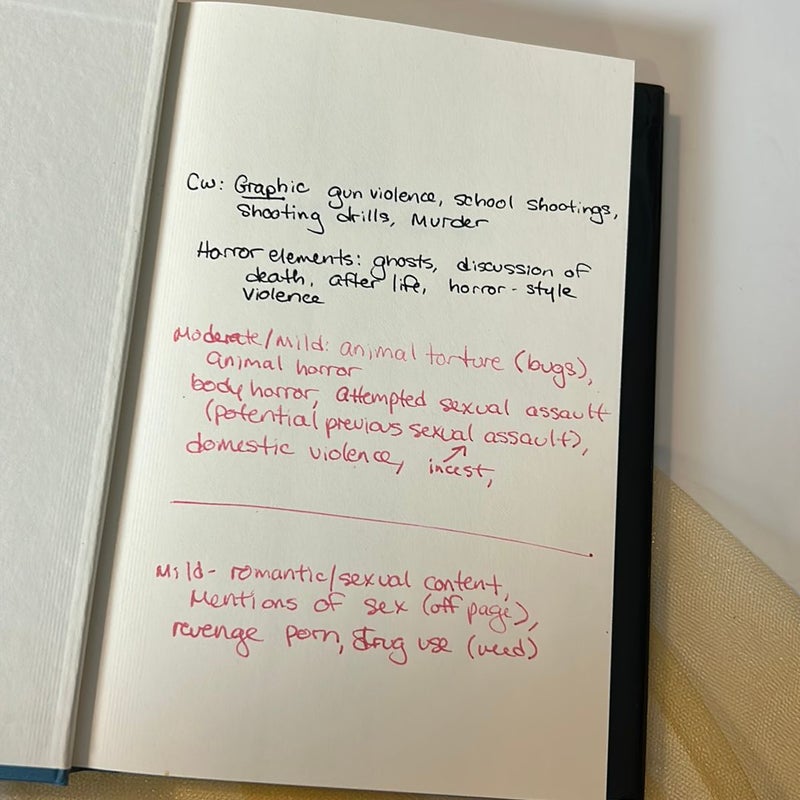 CW: Graphic gun violence, school shootings,
shooting drills, Murder
Horror elements: ghosts, discussion of
death, after life, horror-style
violence
Moderate/Mild: animal torture (bugs),
animal horror
body horror, attempted sexual assault
(potential previous sexual assault),
domestic violence, incest,
Mild- romantic/sexual content,
Mentions of sex (off page),
revenge porn, drug use (weed)